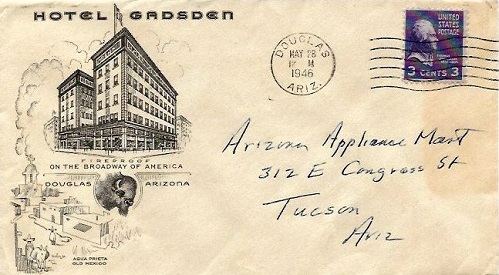 HOTEL GADSDEN
FIREPROOF
ON THE BROADWAY OF AMERICA
DOUGLAS ARIZONA
AGUA PRIETA
OLD MEXICO
DOUGLAS
MAY 28
M
1946
ARIZ.
UNITED
STATES
POSTAGE
3 CENTS 3
Arizona Appliance Mart
312 E Congress St
Tucson
Ariz